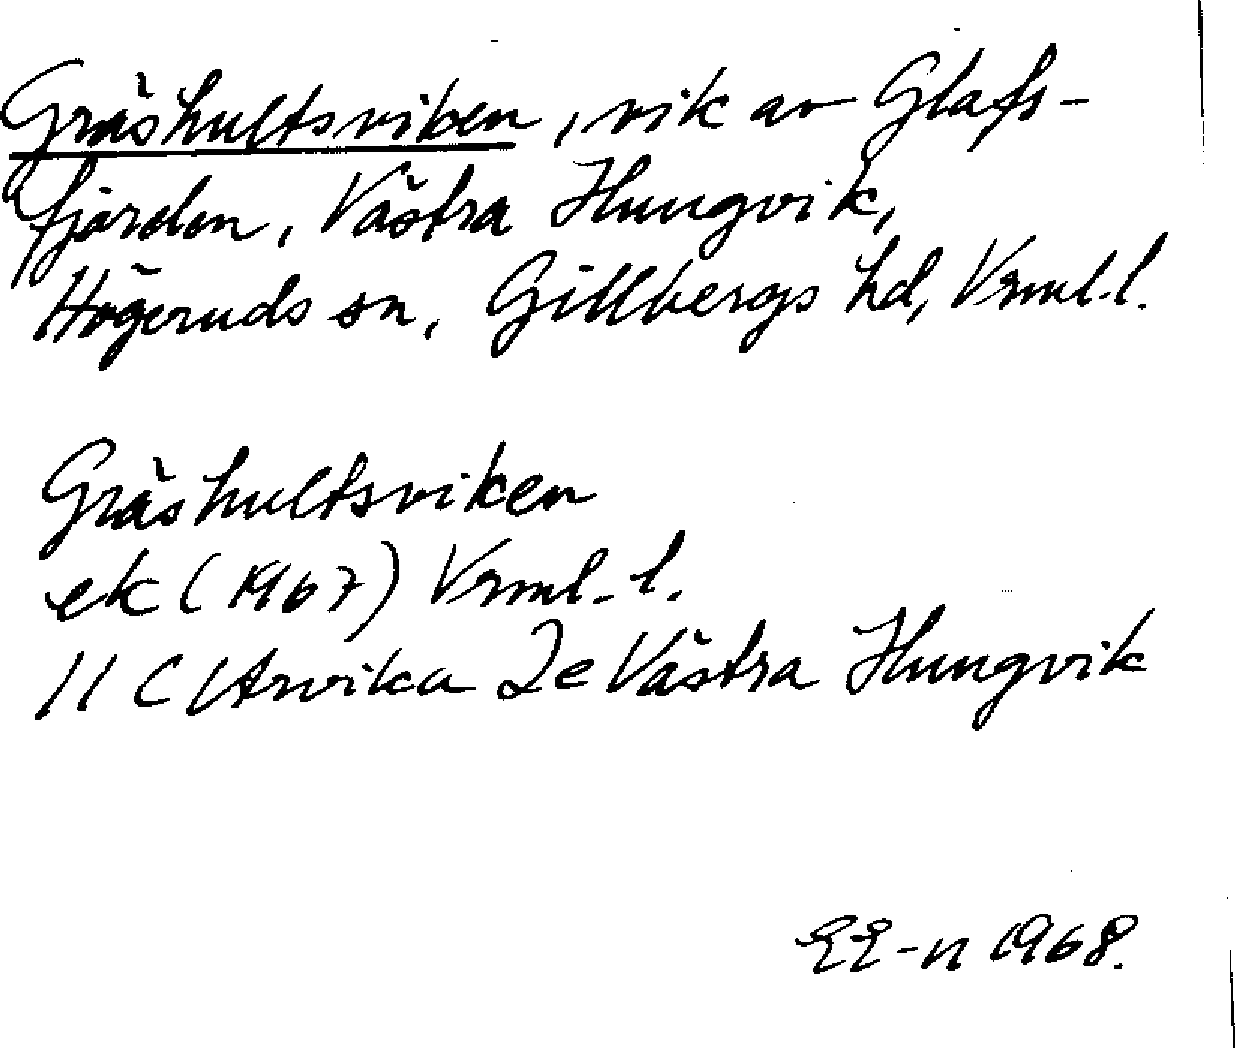 Gräshultsviken, vik av Glafs-
fjorden, Västra Hungvik,
Högeruds sn, Gillbergs hd, Vrml.l.
Gräshultsviken
ek (1967) Vrml.l.
11 C Arvika 2e Västra Hungvik
EE-n 1968.